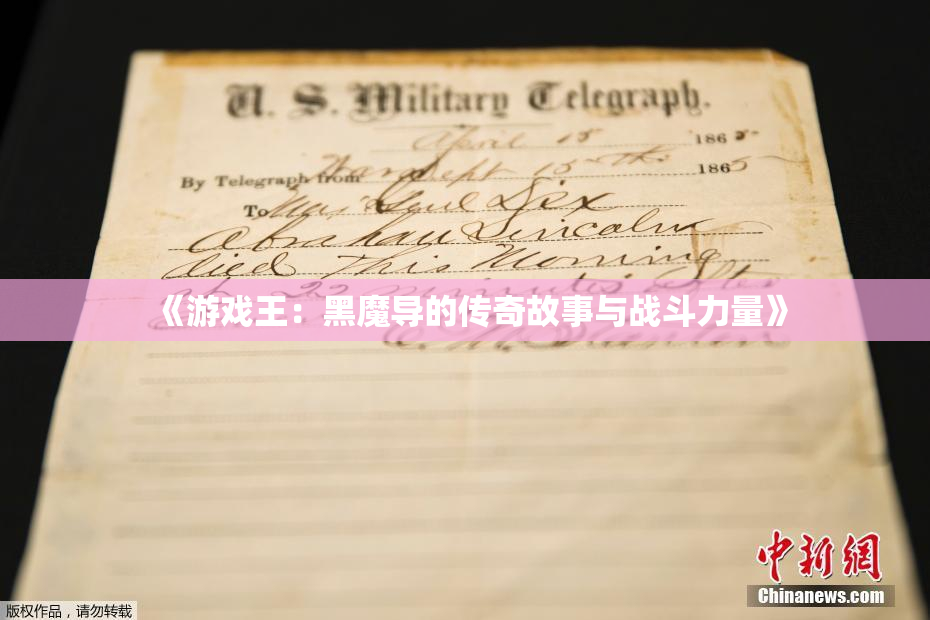 U. S. Military Telegraph.
April 15 1865
By Telegraph from War Dept 15th 1865
To Maj Genl Dix
Abraham Lincoln
died This Morning
at 22 minutes after
《游戏王：黑魔导的传奇故事与战斗力量》
中新网
Chinanews.com
版权作品，请勿转载